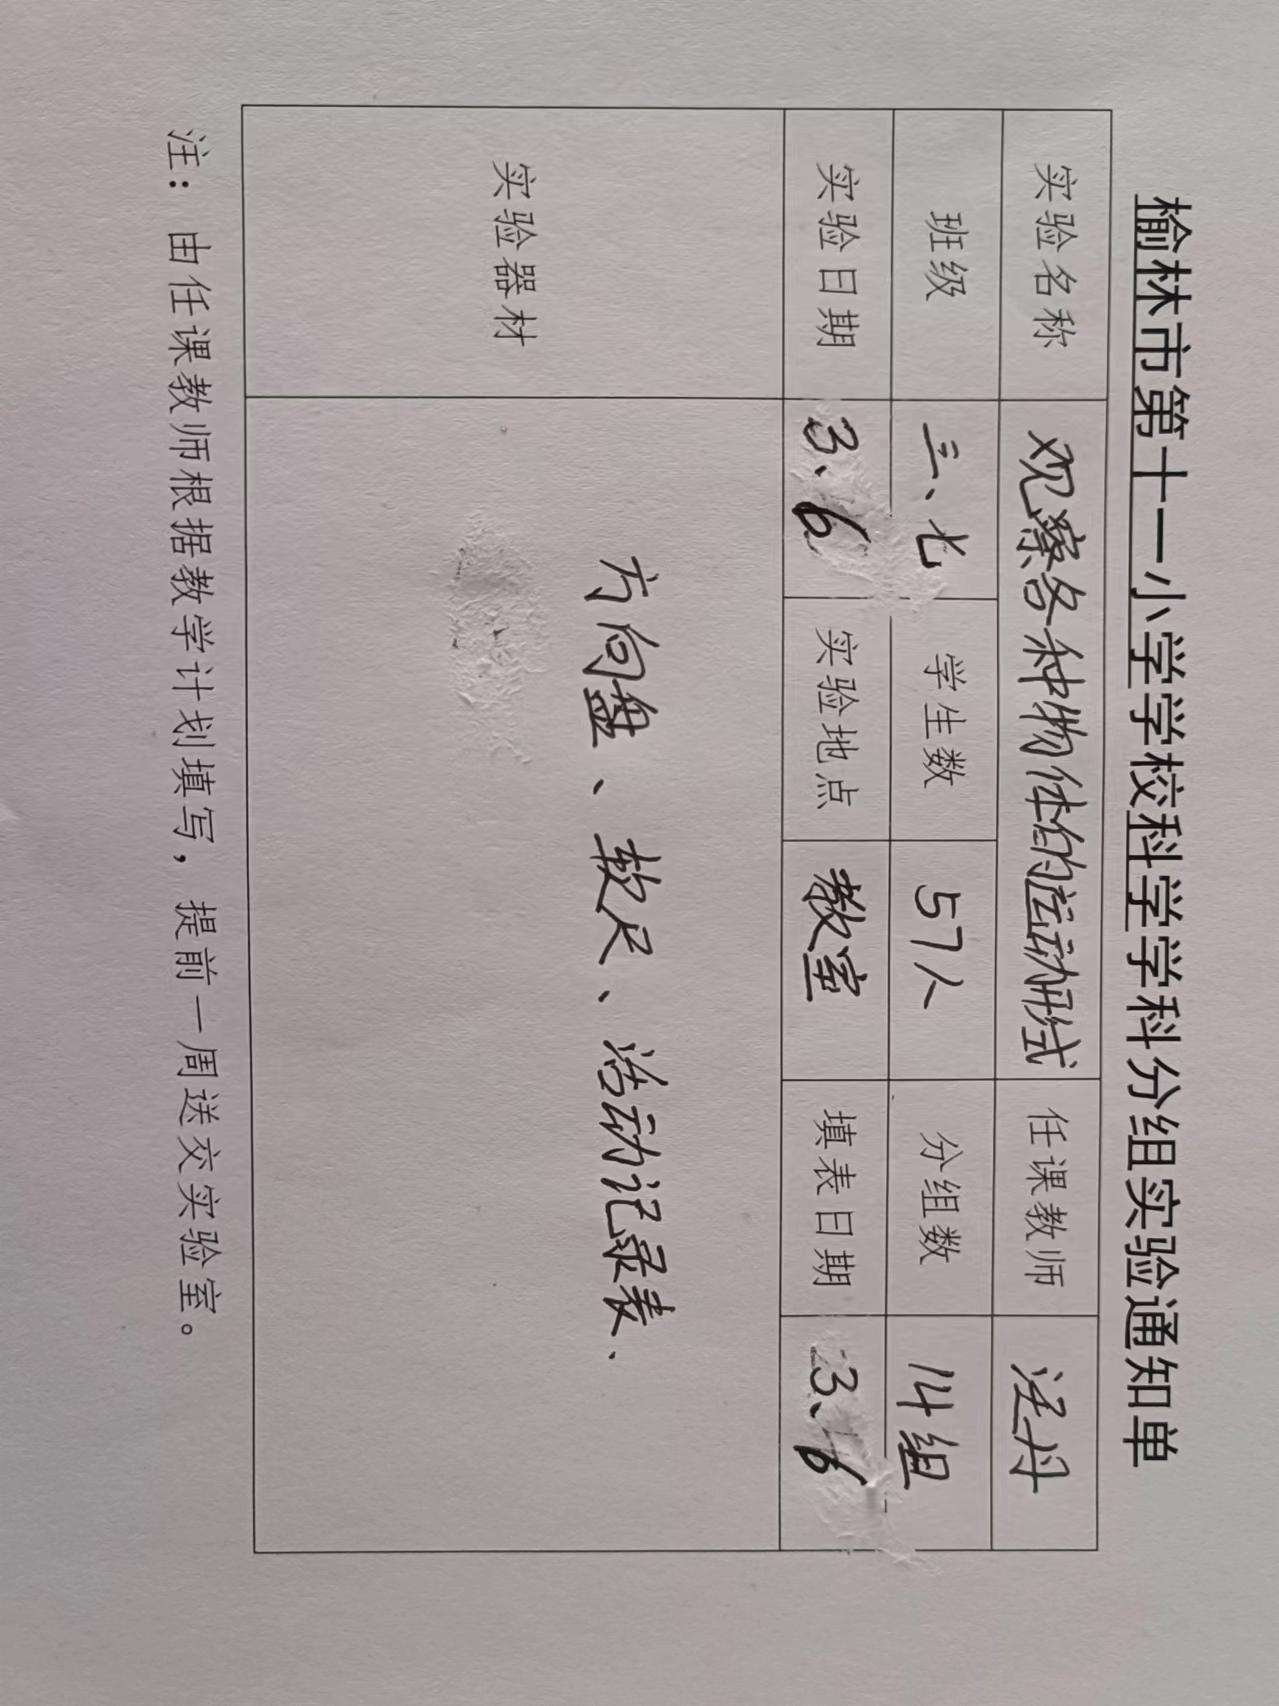 榆林市第十一小学学校科学学科分组实验通知单
实验名称 观察各种物体的运动形式 任课教师 汪丹
班级 三、七 学生数 57人 分组数 14组
实验日期 3、6 实验地点 教室 填表日期 3、6
实验器材 方向盘、软尺、活动记录表、
注：由任课教师根据教学计划填写，提前一周送交实验室。